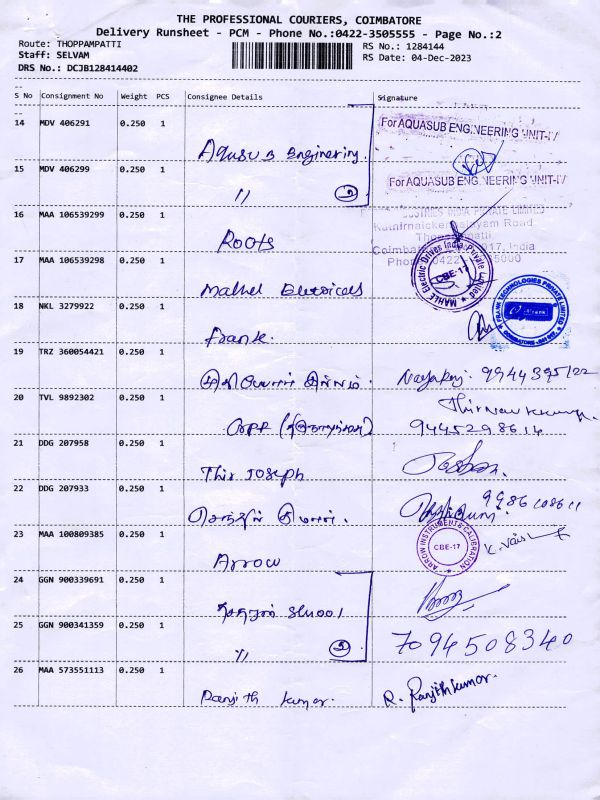 THE PROFESSIONAL COURIERS, COIMBATORE
Delivery Runsheet - PCM - Phone No.:0422-3505555 - Page No.:2
Route: THOPPAMPATTI RS No.: 1284144
Staff: SELVAM RS Date: 04-Dec-2023
DRS No.: DCJB128414402
S No Consignment No Weight PCS Consignee Details Signature
14 MDV 406291 0.250 1 Aquasub Engineering. For AQUASUB ENGINEERING UNIT-IV
15 MDV 406299 0.250 1 〃 2 For AQUASUB ENGINEERING UNIT-IV
16 MAA 106539299 0.250 1 Roots
INDUSTRIES INDIA PRIVATE LIMITED
Road
Thoppampatti
Coimbatore 017, India
17 MAA 106539298 0.250 1 Mahel Electricals MAHLE Electric Drives India Private Limited CBE-17
18 NKL 3279922 0.250 1 Frank. FRANK TECHNOLOGIES PRIVATE LIMITED
19 TRZ 360054421 0.250 1 இல்லம். 9944395122
20 TVL 9892302 0.250 1 9445298614
21 DDG 207958 0.250 1 Thir Joseph
22 DDG 207933 0.250 1 செந்தில் குமார்.
23 MAA 100809385 0.250 1 Arrow ARROW INSTRUMENTS CALIBRATION CBE-17
24 GGN 900339691 0.250 1 School
25 GGN 900341359 0.250 1 〃 2 7094508340
26 MAA 573551113 0.250 1 Ranjith kumar. R. Ranjithkumar.